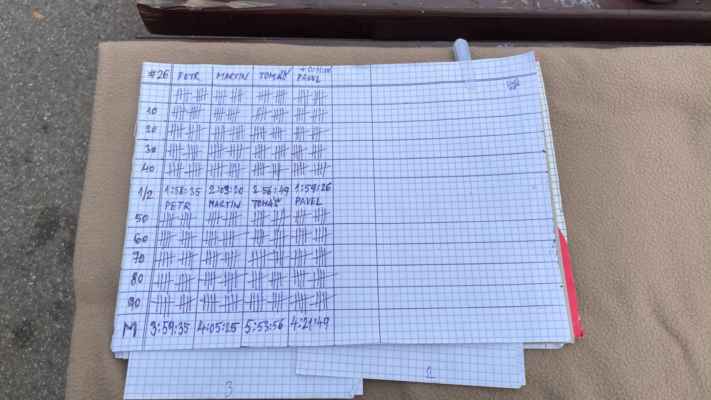 #26 PETR MARTIN TOMÁŠ PAVEL
10
20
30
40
1/2 1:58:35 2:03:20 2:56:49 1:59:26
PETR MARTIN TOMÁŠ PAVEL
50
60
70
80
90
M 3:59:35 4:05:25 5:53:56 4:21:49
3